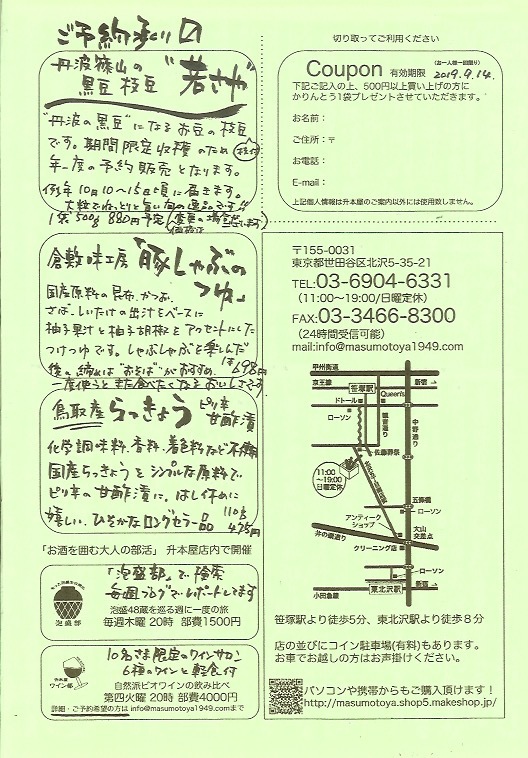 ご予約承り中
丹波篠山の
黒豆枝豆 "若さや"
"丹波の黒豆"になるお豆の枝豆
です。期間限定収穫のため 枝付
年一度の予約販売となります。
例年10月10〜15日頃に届きます。
大粒でねっとりと旨い極の逸品です!!
1袋500g 880円予定(変更の場合がございます)
倉敷味工房「豚しゃぶの
つゆ」
国産原料の昆布、かつお、
さば、しいたけの出汁をベースに
柚子果汁と柚子胡椒をアクセントにした
つけつゆです。しゃぶしゃぶを楽しんだ
後の〆は"おそば"がおすすめ 1本698円
一度使うとまた食べたくなるおいしさです
鳥取産 らっきょう ピリ辛
甘酢漬
化学調味料、香料、着色料など不使用
国産らっきょうをシンプルな原料で
ピリ辛の甘酢漬に。はし休めに
嬉しい、ひそかなロングセラー品 110g
475円
「お酒を囲む大人の部活」 升本屋店内で開催
泡盛部
「泡盛部」で検索
毎週ブログでレポートしてます
泡盛48蔵を巡る週に一度の旅
毎週木曜 20時 部費1500円
升本屋
ワイン部
10名さま限定のワインサロン
6種のワインと軽食付
自然派ビオワインの飲み比べ
第四火曜 20時 部費4000円
詳細・ご予約希望の方は info@masumotoya1949.comまで
切り取ってご利用ください
Coupon 有効期限 (お一人様一回限り) 2019.9.14.
下記ご記入の上、500円以上買い上げの方に
かりんとう1袋プレゼントさせていただきます。
お名前:
ご住所:〒
お電話:
E-mail:
上記個人情報は升本屋のご案内以外には使用致しません。
〒155-0031
東京都世田谷区北沢5-35-21
TEL:03-6904-6331
(11:00〜19:00/日曜定休)
FAX:03-3466-8300
(24時間受信可能)
mail:info@masumotoya1949.com
甲州街道
京王線
笹塚駅
新宿→
ドトール
Queen's
ローソン
観音通り
中野通り
佐藤葬祭
11:00
〜19:00
日曜定休
五條橋
ローソン
アンティーク
ショップ
大山
交差点
井の頭通り
クリーニング店
ローソン
東北沢駅
新宿→
小田急線
笹塚駅より徒歩5分、東北沢駅より徒歩8分
店の並びにコイン駐車場(有料)もあります。
お車でお越しの方はお声掛けください。
パソコンや携帯からもご購入頂けます!
http://masumotoya.shop5.makeshop.jp/